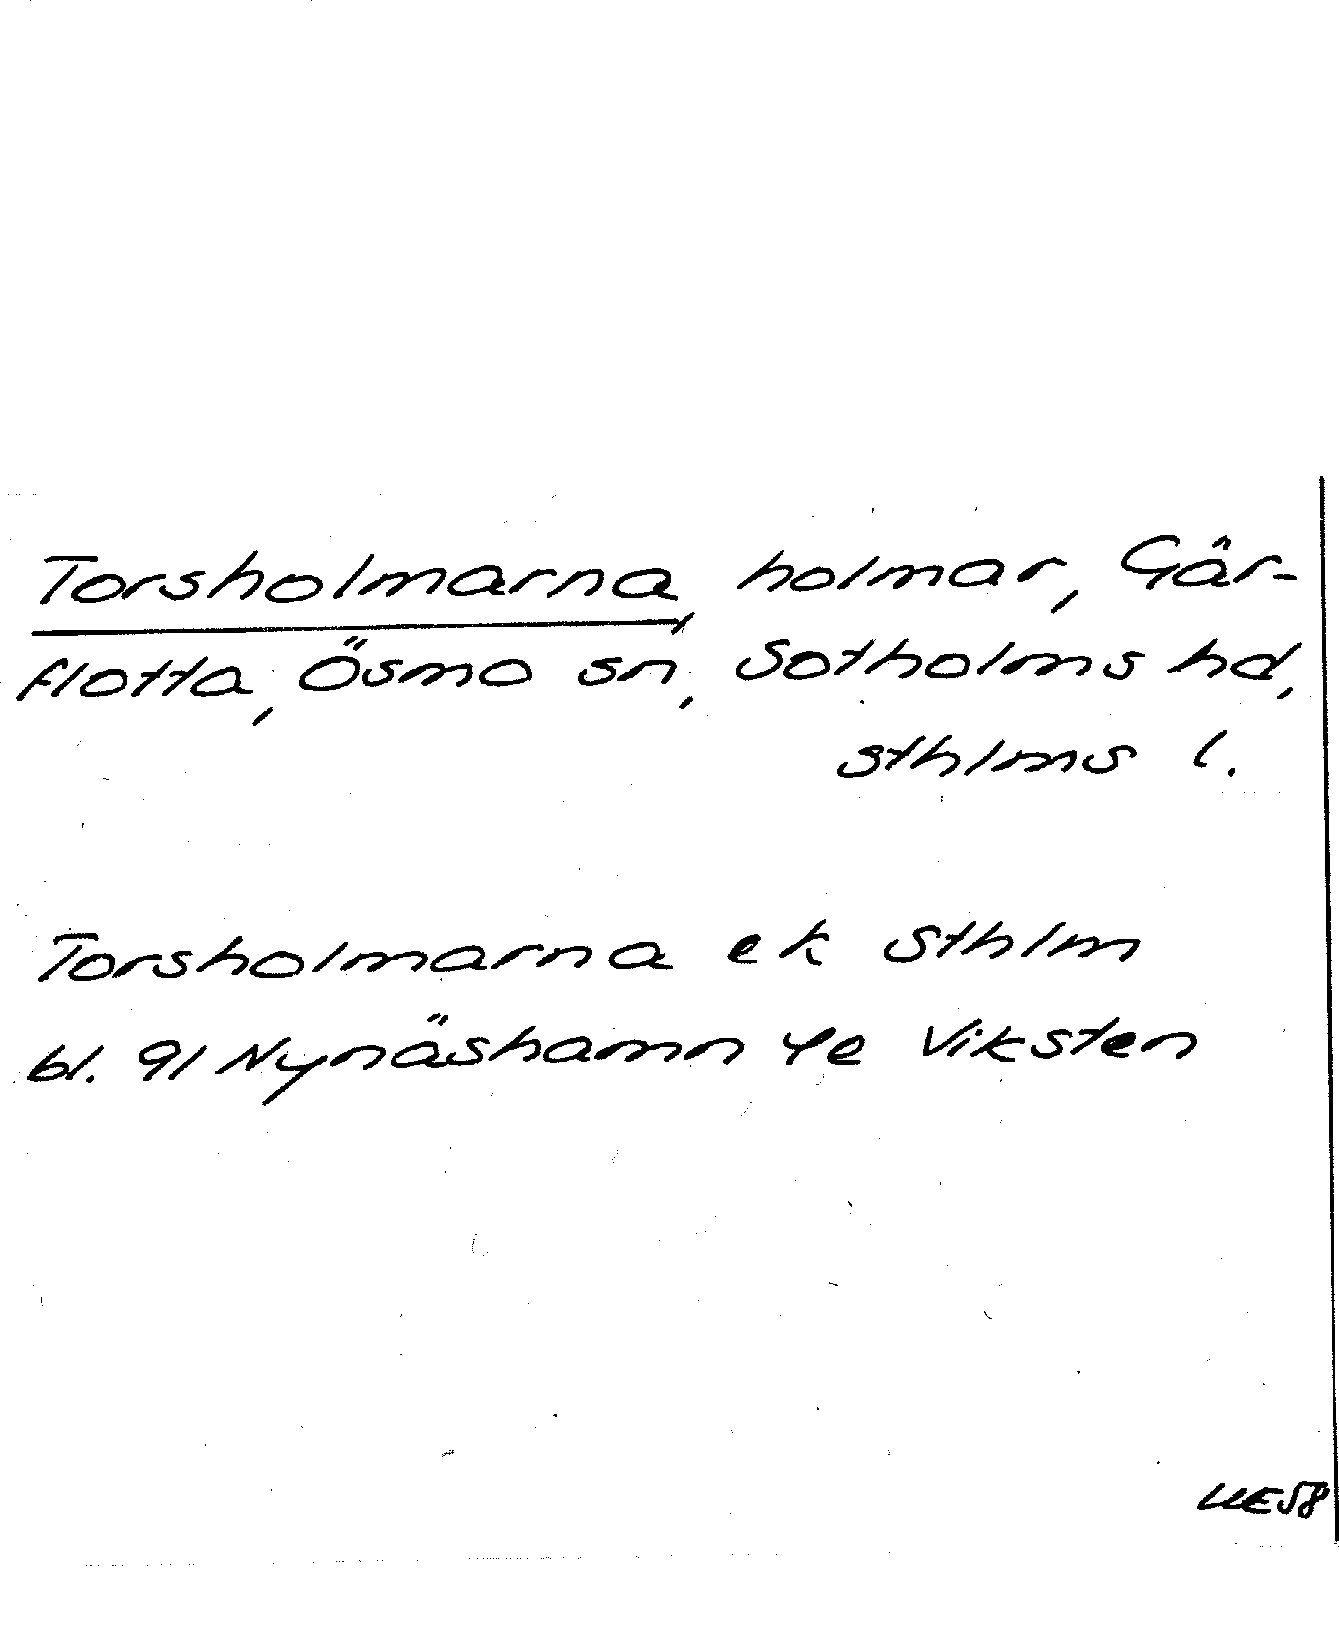 Torsholmarna, holmar, Går-
flotta, Ösmo sn, Sotholms hd,
Sthlms l.
Torsholmarna ek Sthlm
bl. 91 Nynäshamn 4e Viksten